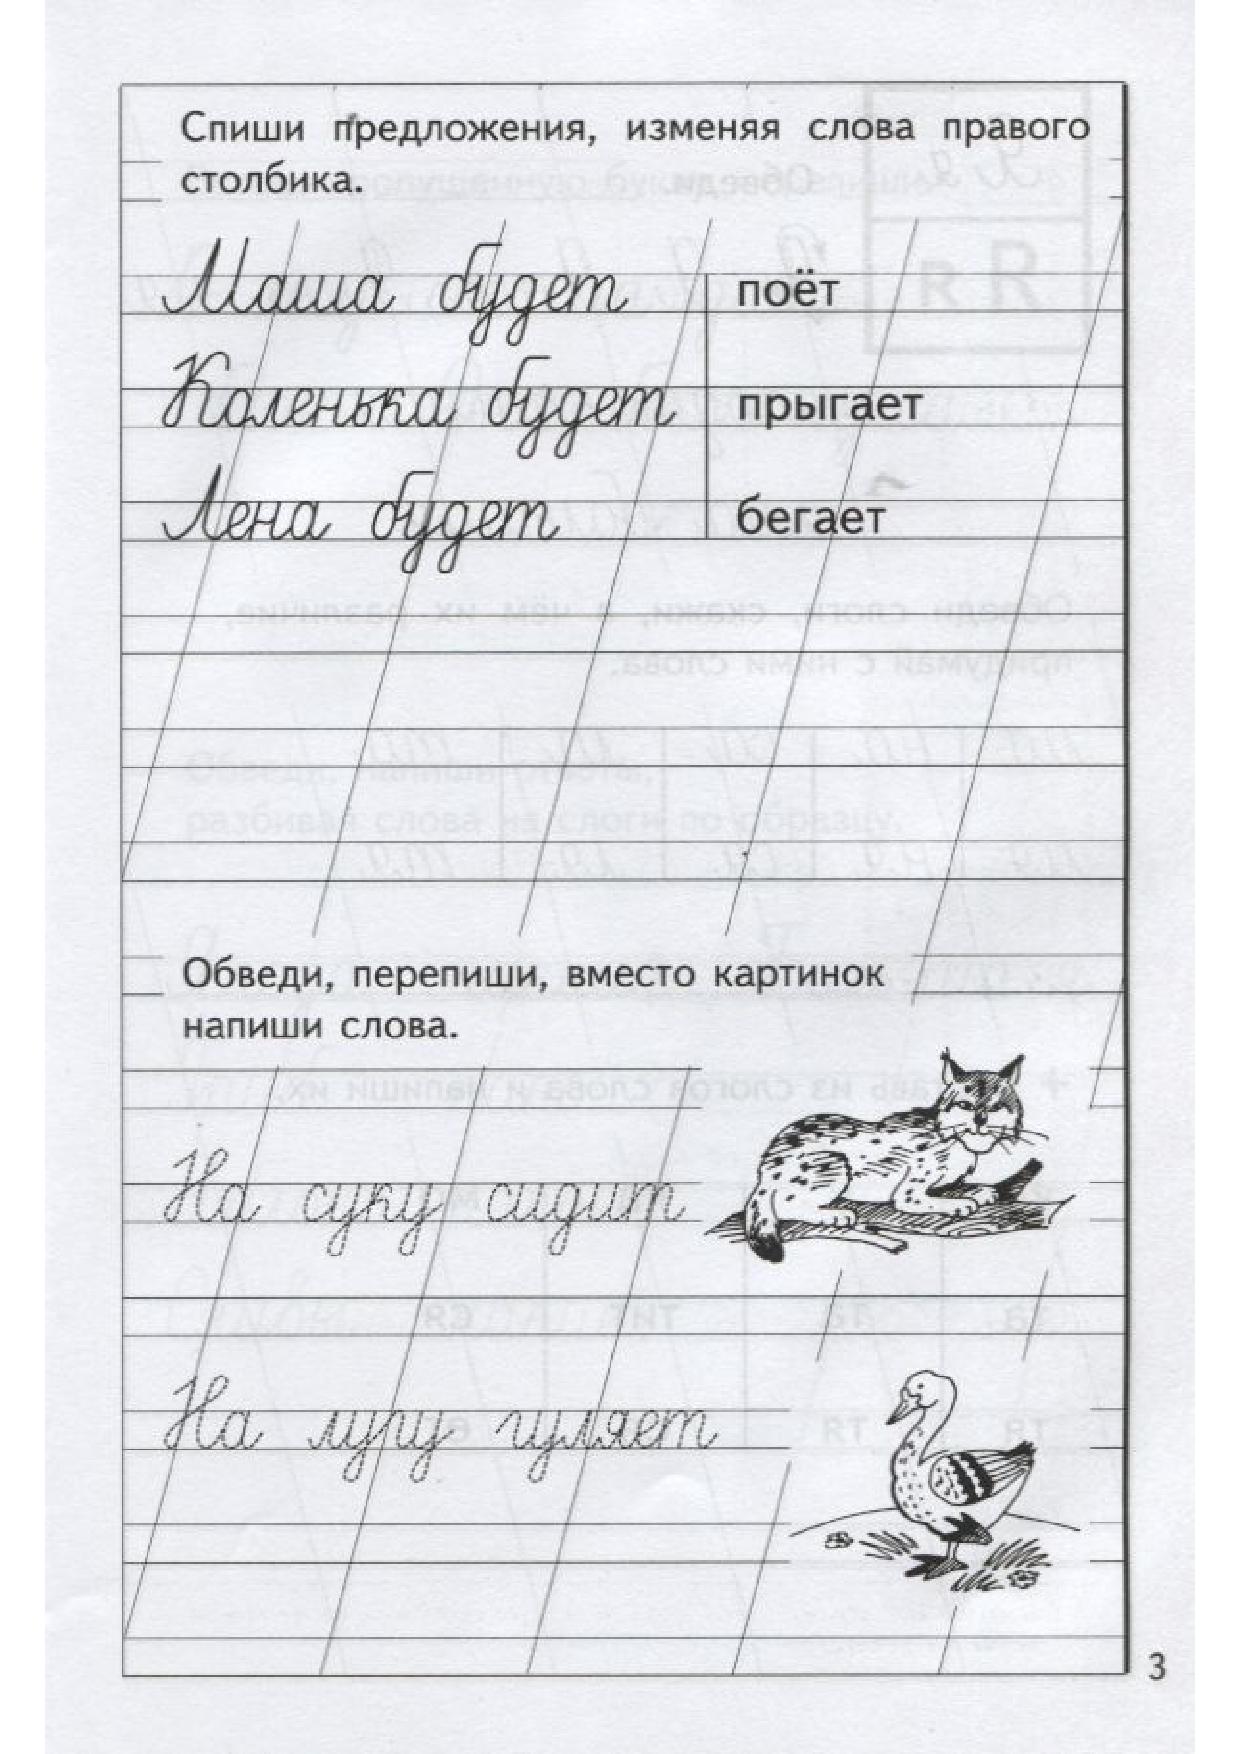 Спиши предложения, изменяя слова правого
столбика.
Маша будет поёт
Коленька будет прыгает
Лена будет бегает
Обведи, перепиши, вместо картинок
напиши слова.
На суку сидит
На лугу гуляет
3